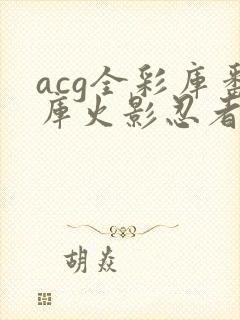 acg全彩库
库火影忍者
胡焱